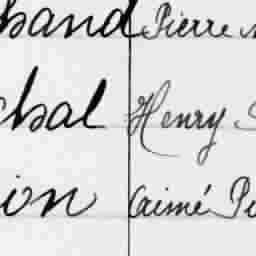 band Pierre
chal Henry
ion Aimé Pi